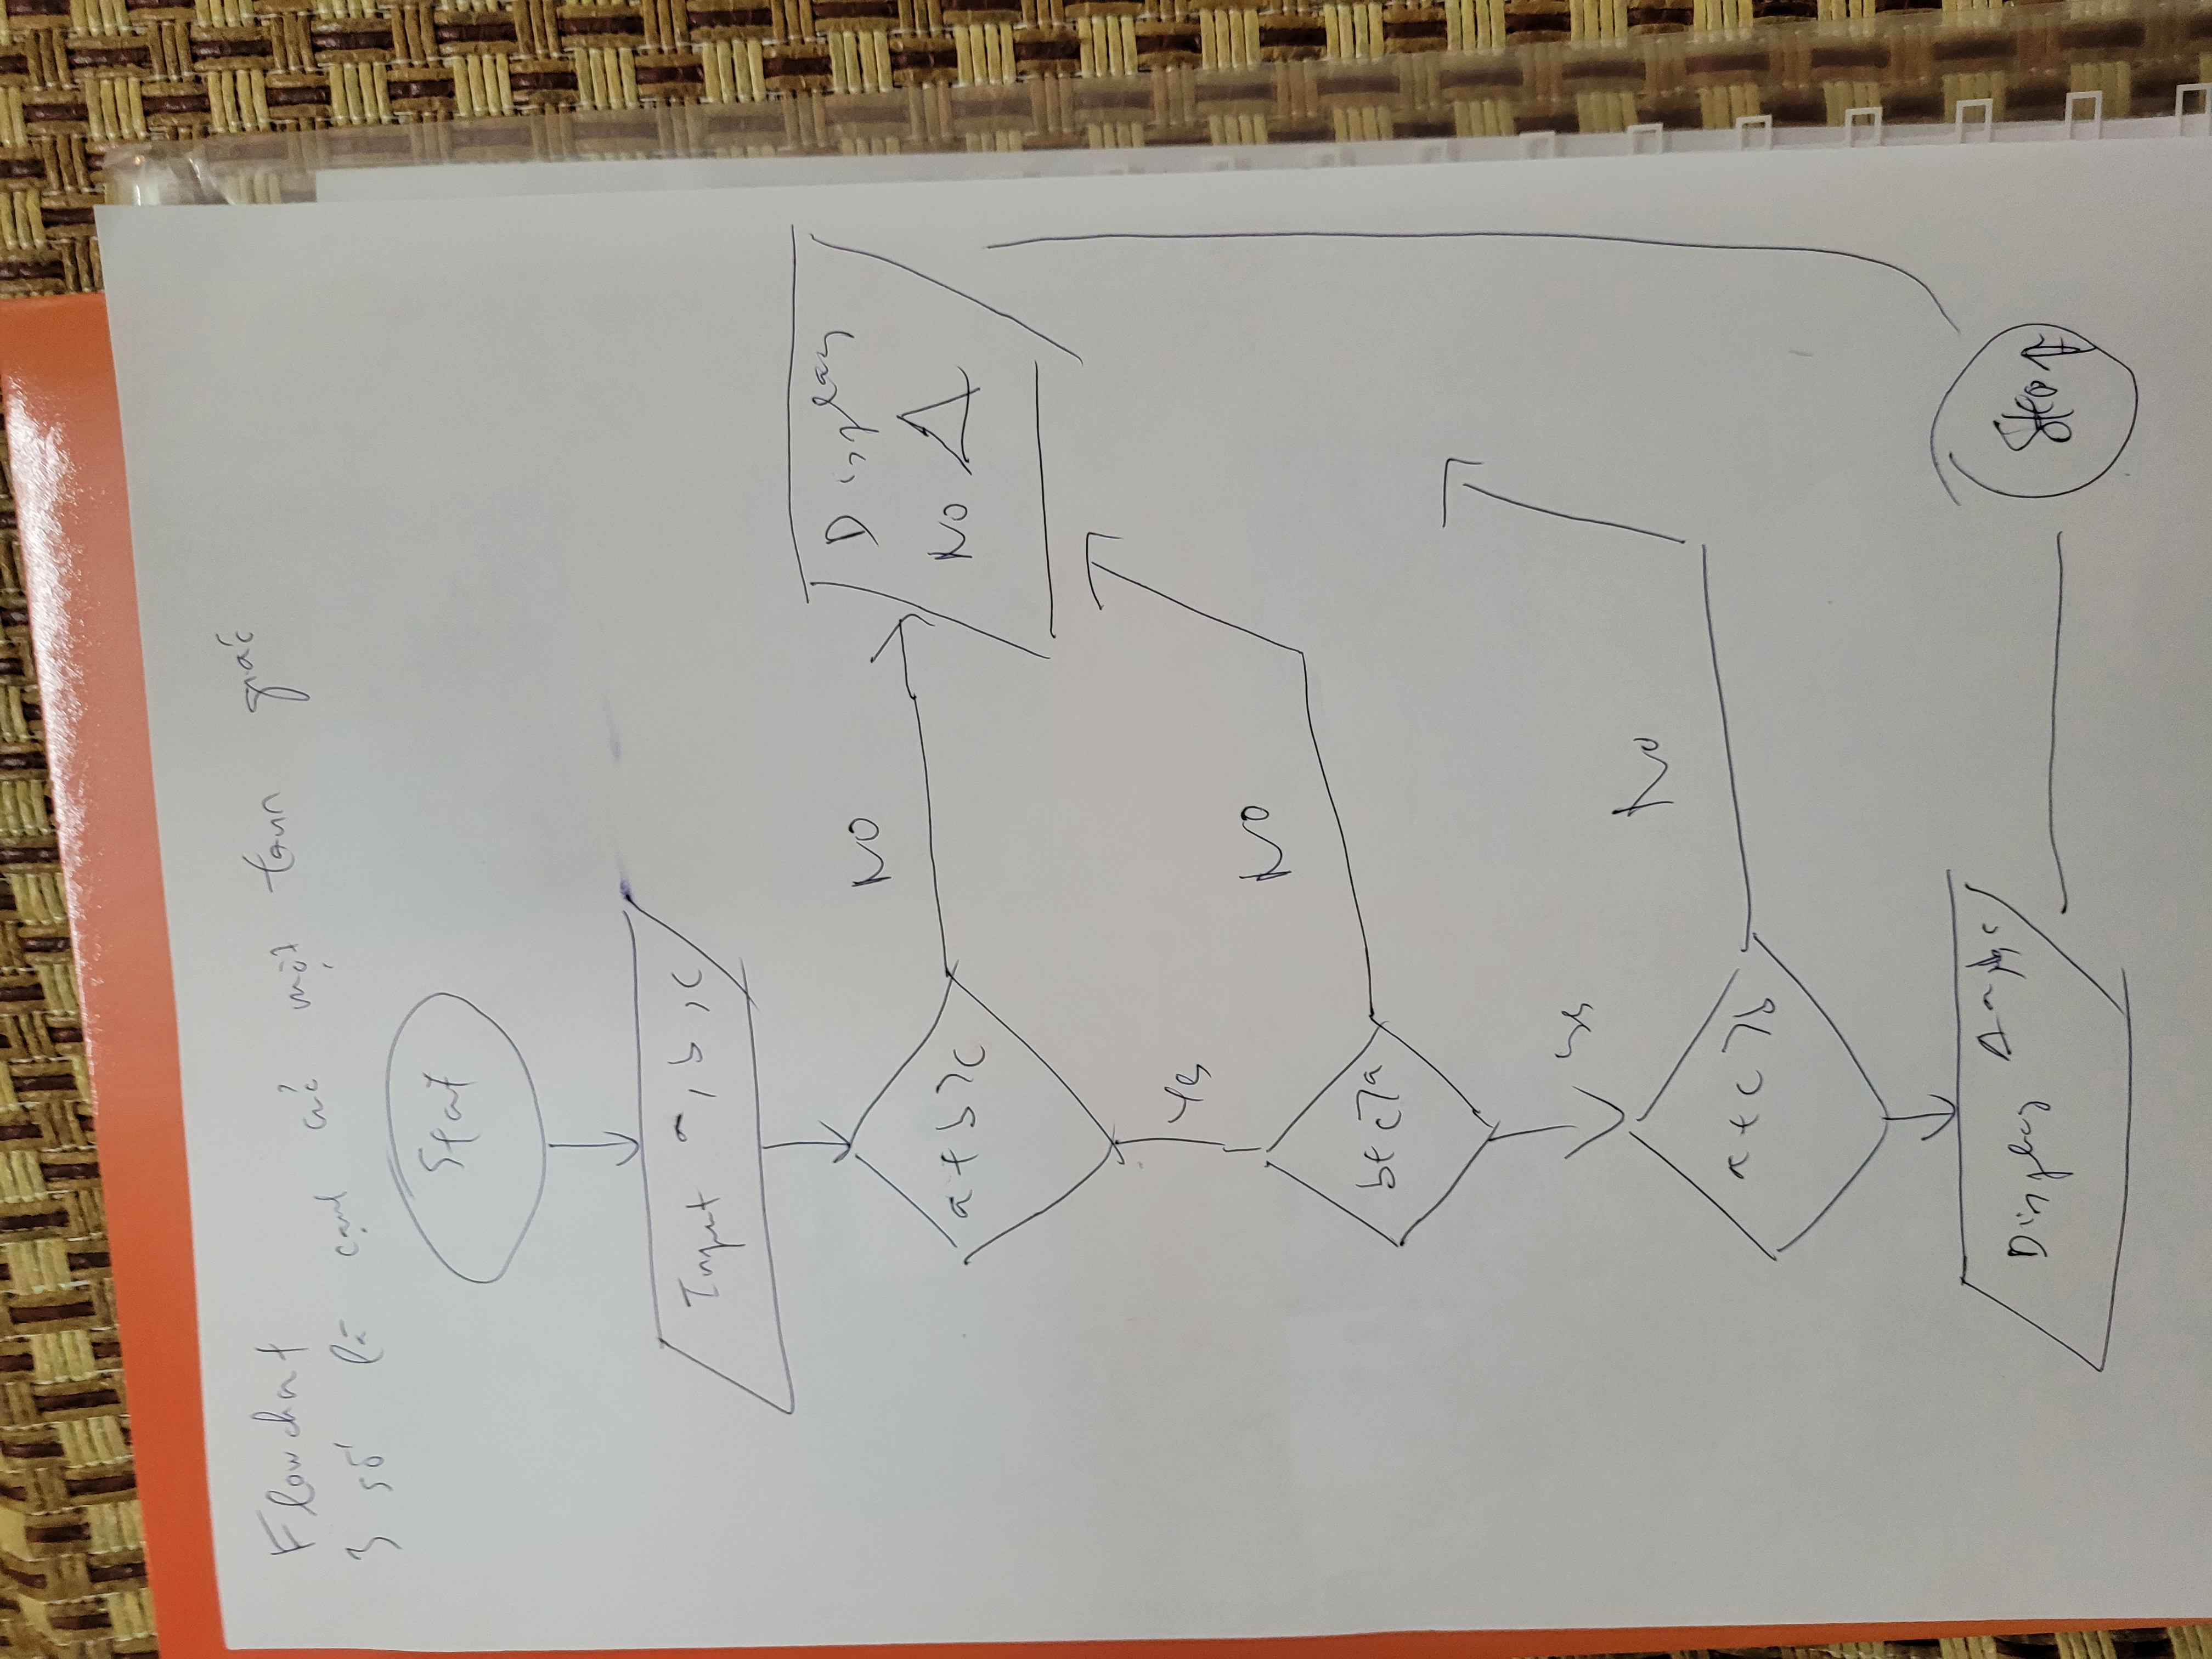 Flowchart
3 số là cạnh củả một tam giác
Start
Input a, b, c
a + b > c
No
Display
No Δ
Yes
b + c > a
No
Yes
a + c > b
No
Display Δ a, b, c
Stop